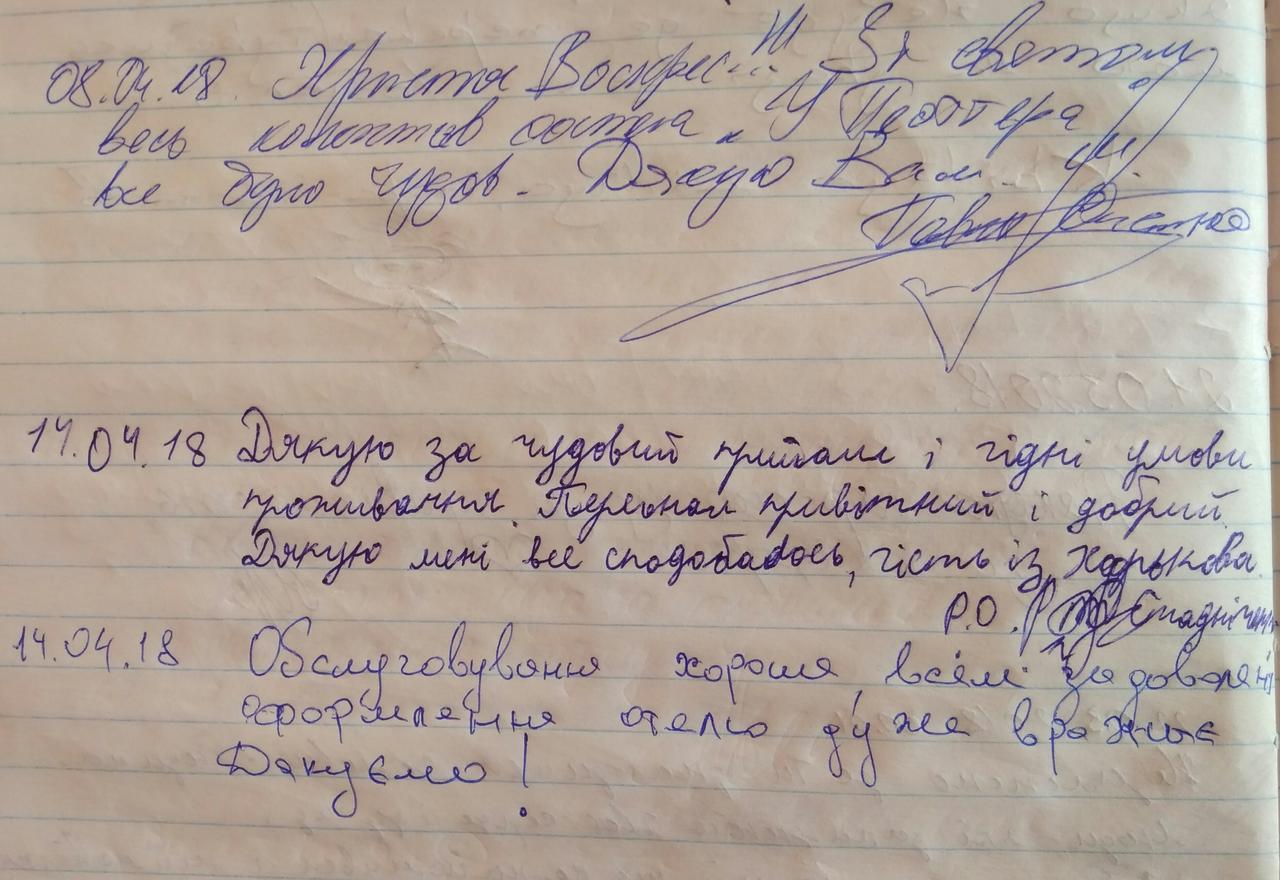 08.04.18. Христос Воскрес...!!! Зі святом
весь колектив готелю „У Пітера
все було чудов. Дякую Вам.
Павло
14.04.18 Дякую за чудовий прийом і гідні умови
проживання. Персонал привітний і добрий.
Дякую мені все сподобалось, гість із Харькова.
Р.О. Стадніченко
14.04.18 Обслуговування хороше, всім задоволені
оформлення отелю дуже вражає
Дякуємо!